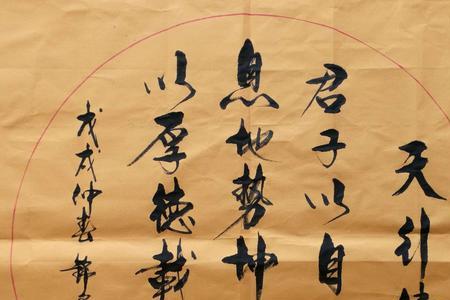 天行
君子以自
息地勢坤
以厚德載
戊戌仲春